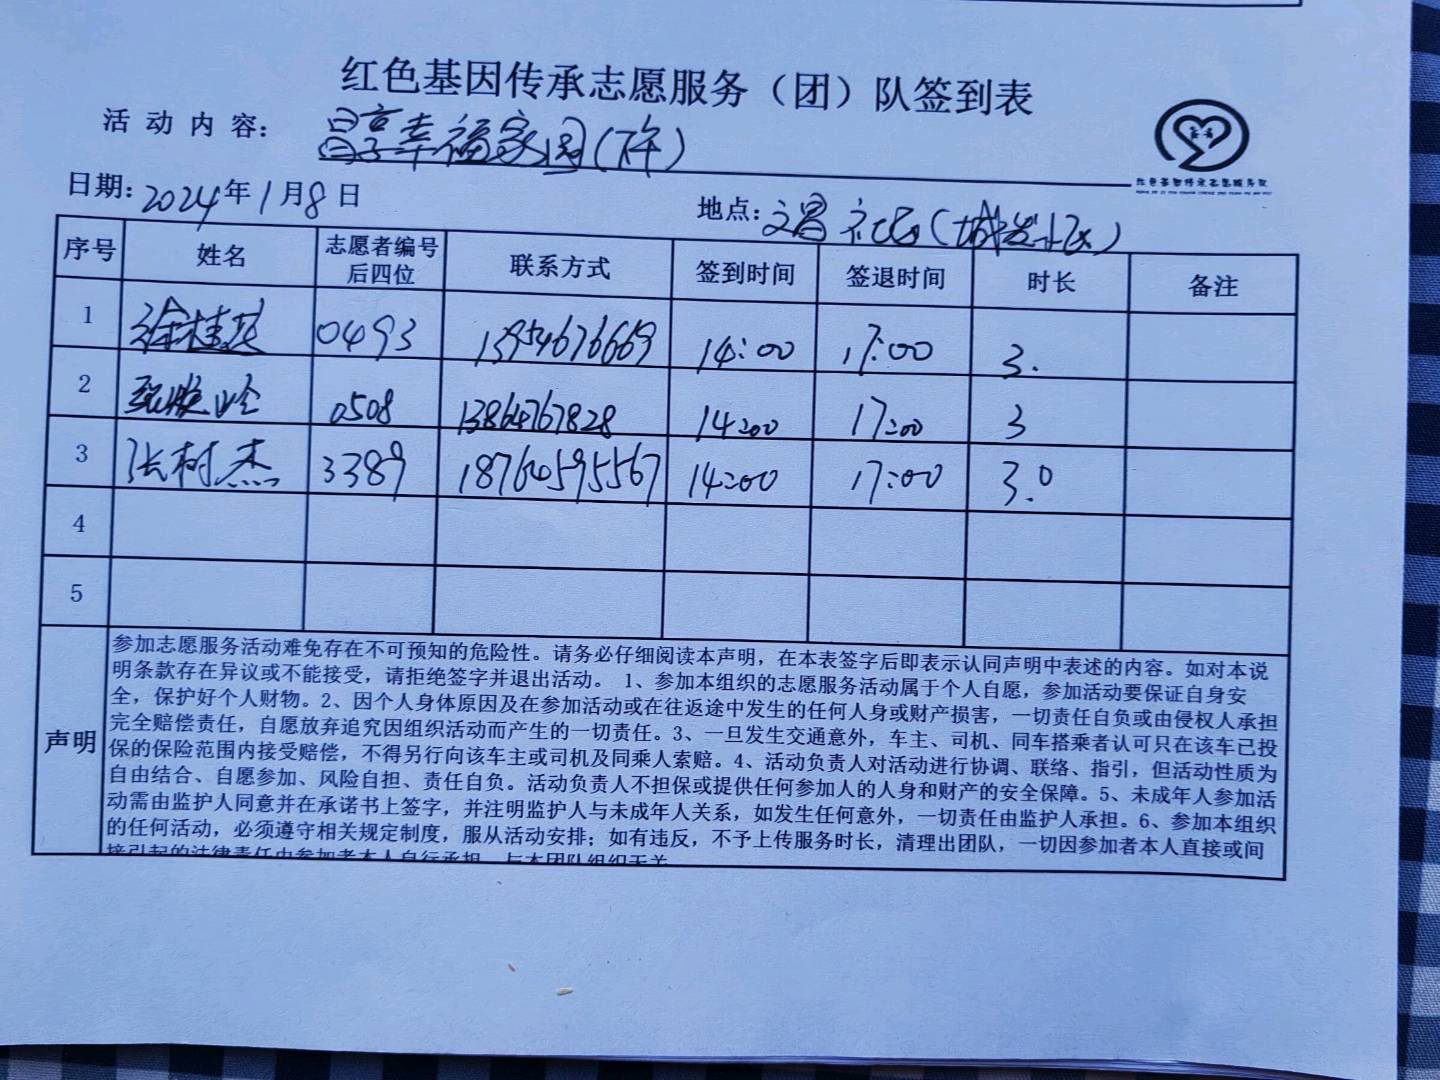 红色基因传承志愿服务（团）队签到表
活动内容：昌享幸福家园(下午)
日期：2024年1月8日
地点：文昌社区(城发小区)
序号 姓名 志愿者编号后四位 联系方式 签到时间 签退时间 时长 备注
1 徐桂芬 0493 13954676669 14:00 17:00 3.
2 0508 13864767828 14:00 17:00 3
3 张树杰 3389 18764595567 14:00 17:00 3.0
4
5
声明
参加志愿服务活动难免存在不可预知的危险性。请务必仔细阅读本声明，在本表签字后即表示认同声明中表述的内容。如对本说
明条款存在异议或不能接受，请拒绝签字并退出活动。 1、参加本组织的志愿服务活动属于个人自愿，参加活动要保证自身安
全，保护好个人财物。2、因个人身体原因及在参加活动或在往返途中发生的任何人身或财产损害，一切责任自负或由侵权人承担
完全赔偿责任，自愿放弃追究因组织活动而产生的一切责任。3、一旦发生交通意外，车主、司机、同车搭乘者认可只在该车已投
保的保险范围内接受赔偿，不得另行向该车主或司机及同乘人索赔。4、活动负责人对活动进行协调、联络、指引，但活动性质为
自由结合、自愿参加、风险自担、责任自负。活动负责人不担保或提供任何参加人的人身和财产的安全保障。5、未成年人参加活
动需由监护人同意并在承诺书上签字，并注明监护人与未成年人关系，如发生任何意外，一切责任由监护人承担。6、参加本组织
的任何活动，必须遵守相关规定制度，服从活动安排；如有违反，不予上传服务时长，清理出团队，一切因参加者本人直接或间
接引起的法律责任由参加者本人自行承担，与本团队组织无关